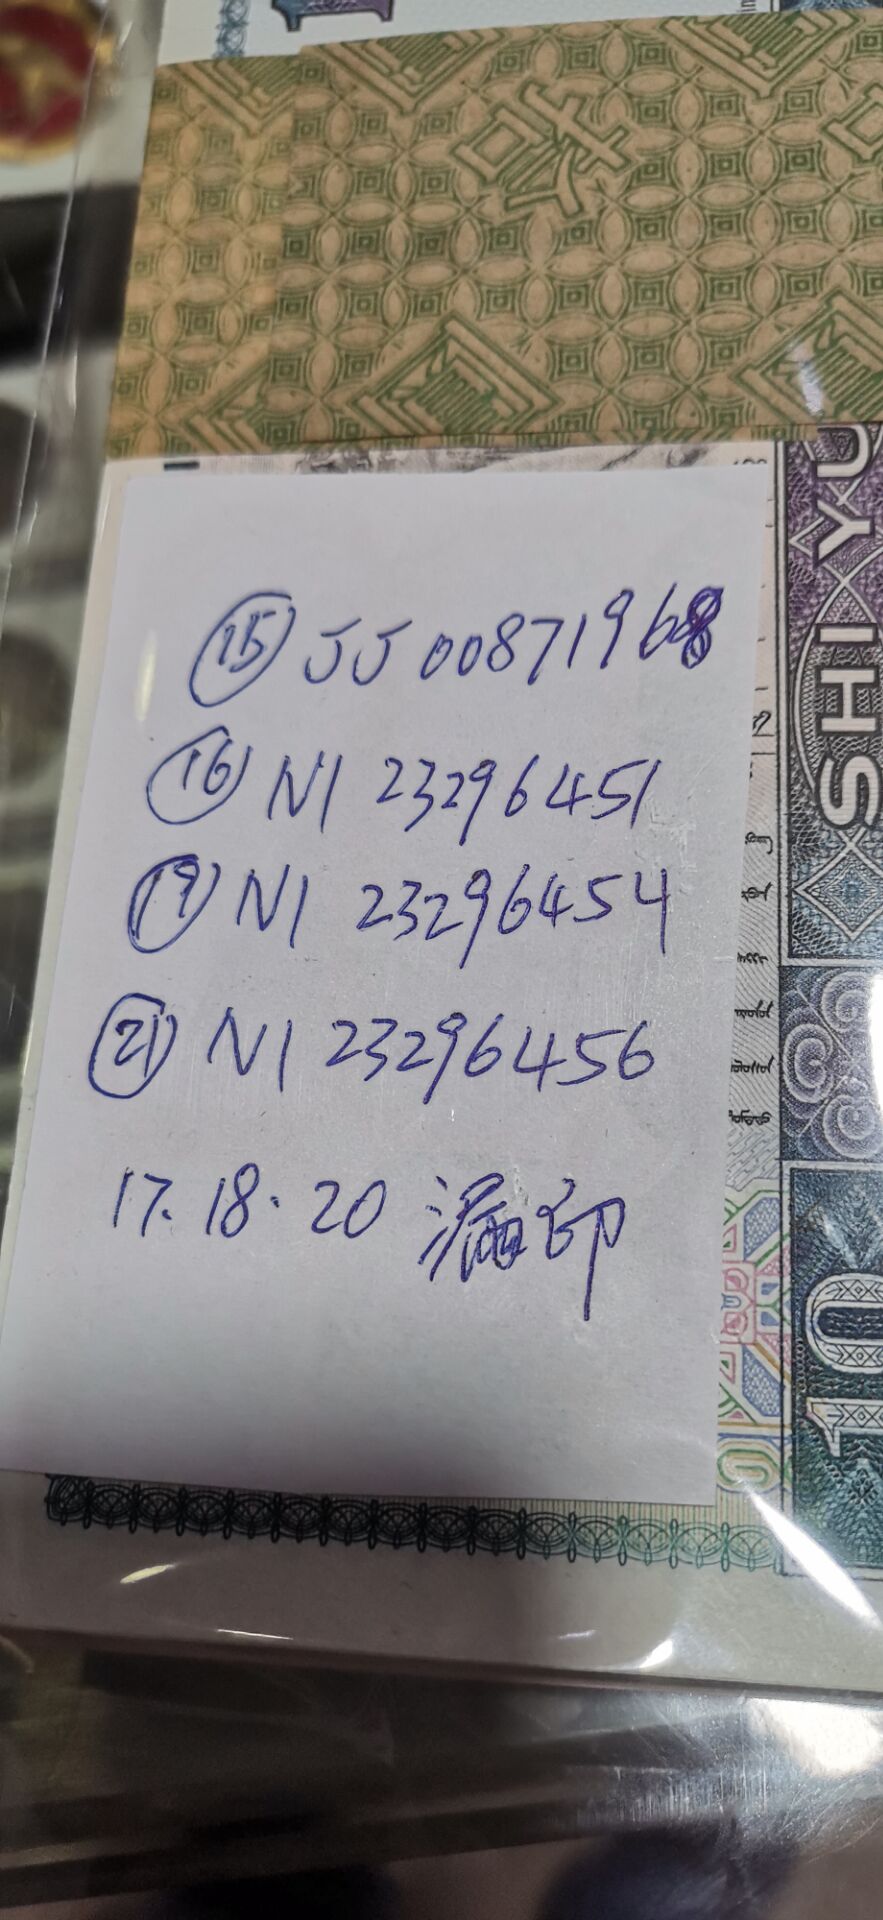 ⑮ JJ 00871968
⑯ NI 23296451
⑲ NI 23296454
㉑ NI 23296456
17. 18. 20 漏印
SHI YU
10